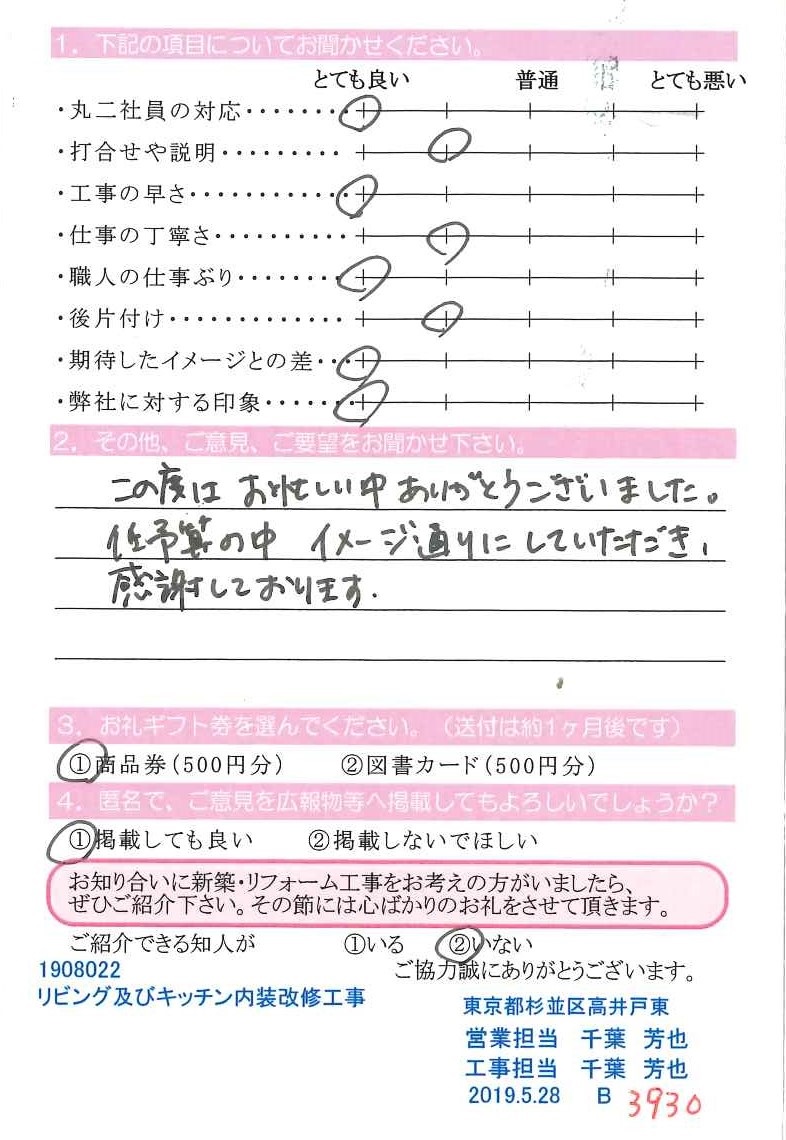 1. 下記の項目についてお聞かせください。
とても良い 普通 とても悪い
・丸二社員の対応・・・・・・・
・打合せや説明・・・・・・・・・
・工事の早さ・・・・・・・・・・
・仕事の丁寧さ・・・・・・・・・
・職人の仕事ぶり・・・・・・・
・後片付け・・・・・・・・・・・・
・期待したイメージとの差・・・
・弊社に対する印象・・・・・・
2. その他、ご意見、ご要望をお聞かせ下さい。
この度は お忙しい中 ありがとうございました。
低予算の中 イメージ通りにしていただき、
感謝しております.
3. お礼ギフト券を選んでください。（送付は約1ヶ月後です）
①商品券（500円分） ②図書カード（500円分）
4. 匿名で、ご意見を広報物等へ掲載してもよろしいでしょうか？
①掲載しても良い ②掲載しないでほしい
お知り合いに新築・リフォーム工事をお考えの方がいましたら、
ぜひご紹介下さい。その節には心ばかりのお礼をさせて頂きます。
ご紹介できる知人が ①いる ②いない
1908022 ご協力誠にありがとうございます。
リビング及びキッチン内装改修工事
東京都杉並区高井戸東
営業担当 千葉 芳也
工事担当 千葉 芳也
2019.5.28 B 3930